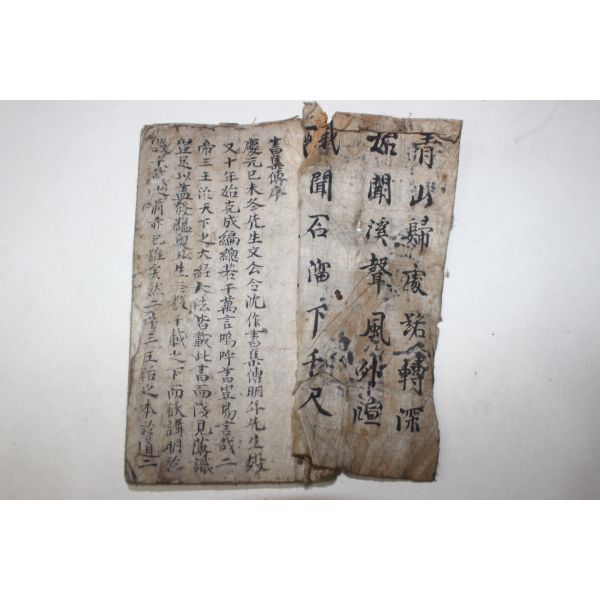 靑山歸處路轉深
始聞溪聲風外暄
聞石溜下千尺
書集傳序
慶元己未冬先生文公令沈作書集傳明年先生歿
又十年始克成編總若干萬言嗚呼書豈易言哉二
帝三王治天下之大經大法皆載此書而淺見薄識
豈足以盡發蘊奧且生於數千載之下而欲講明於
數千載之前亦已難矣然二帝三王治之本於道二